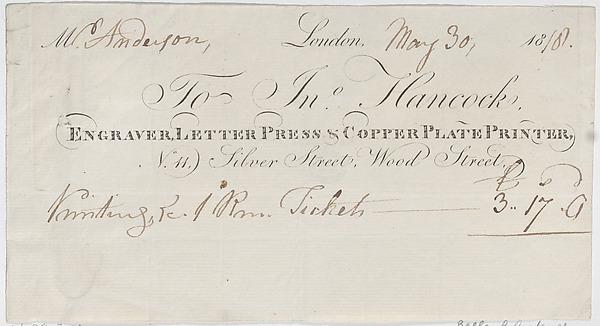 Mr. Anderson, London, May 30, 1818.
To Jno. Hancock,
ENGRAVER, LETTER PRESS & COPPER PLATE PRINTER,
No. 11, Silver Street, Wood Street,
£ s d
Printing, &c. 1 Rm. Tickets 3 .. 17 . 0